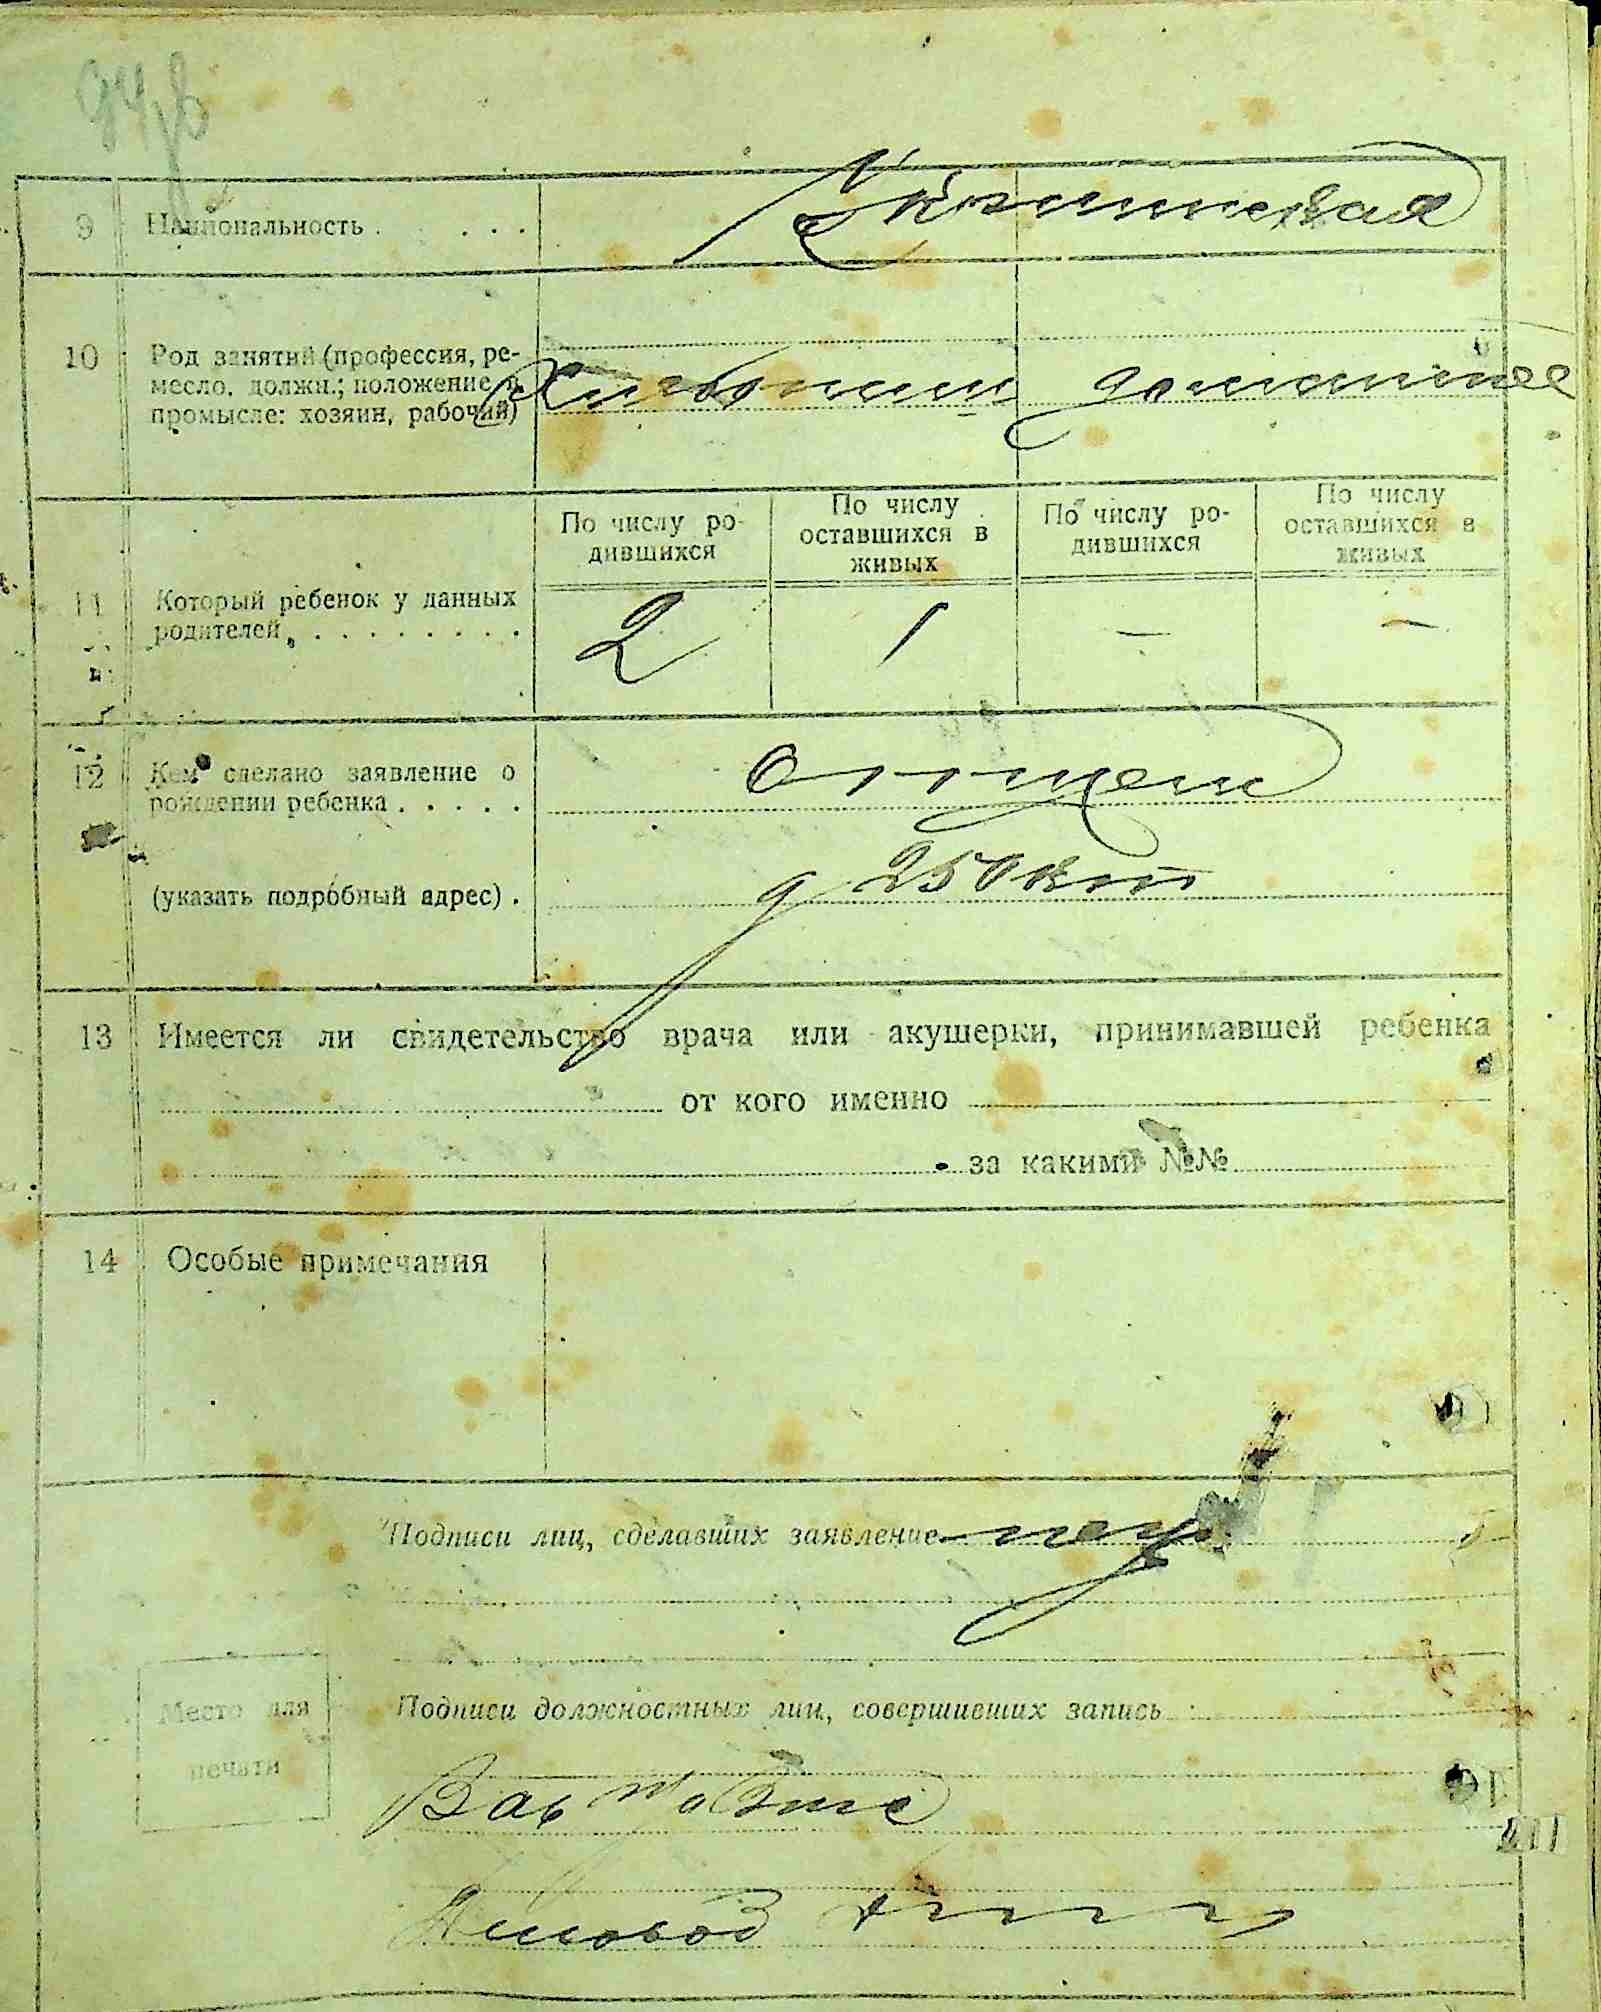 9 Национальность . . . . Украинская
10 Род занятий (профессия, ре-
месло, должн.; положение в
промысле: хозяин, рабочий)
домашнее
11 Который ребенок у данных
родителей . . . . . . . .
По числу ро-
дившихся
По числу
оставшихся в
живых
По числу ро-
дившихся
По числу
оставшихся в
живых
2 1 — —
12 Кем сделано заявление о
рождении ребенка . . . . .
отцем
(указать подробный адрес) .
13 Имеется ли свидетельство врача или акушерки, принимавшей ребенка
от кого именно
за какими №№
14 Особые примечания
Подписи лиц, сделавших заявление
Место для
печати
Подписи должностных лиц, совершивших запись